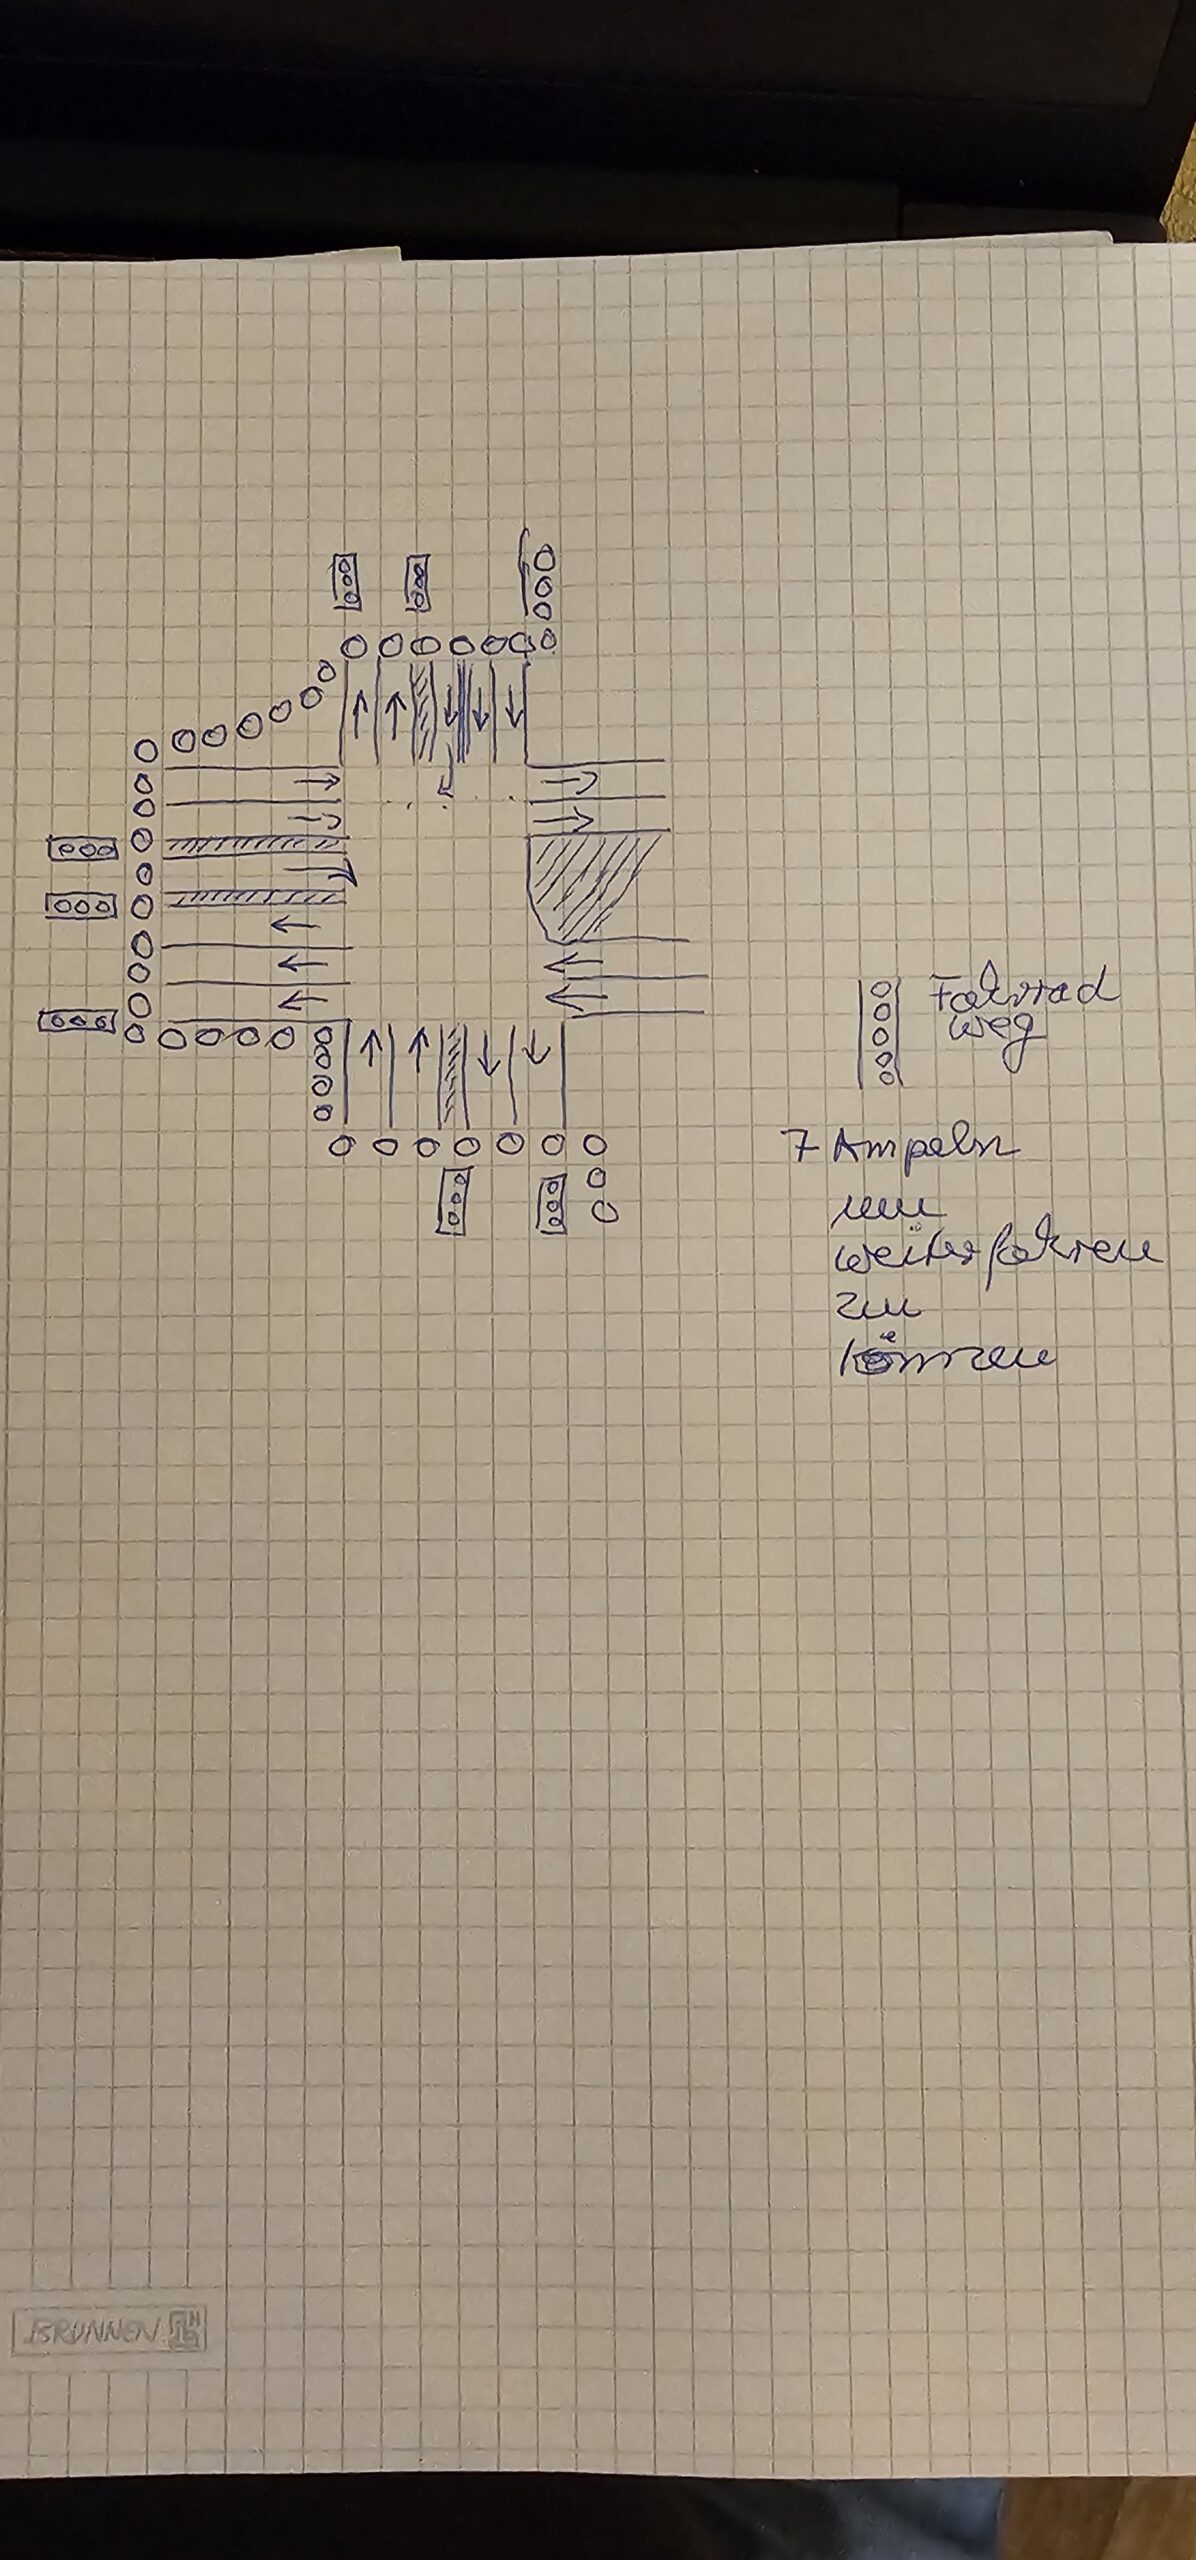 Fahrrad
weg
7 Ampeln
um
weiterfahren
zu
können
BRUNNEN